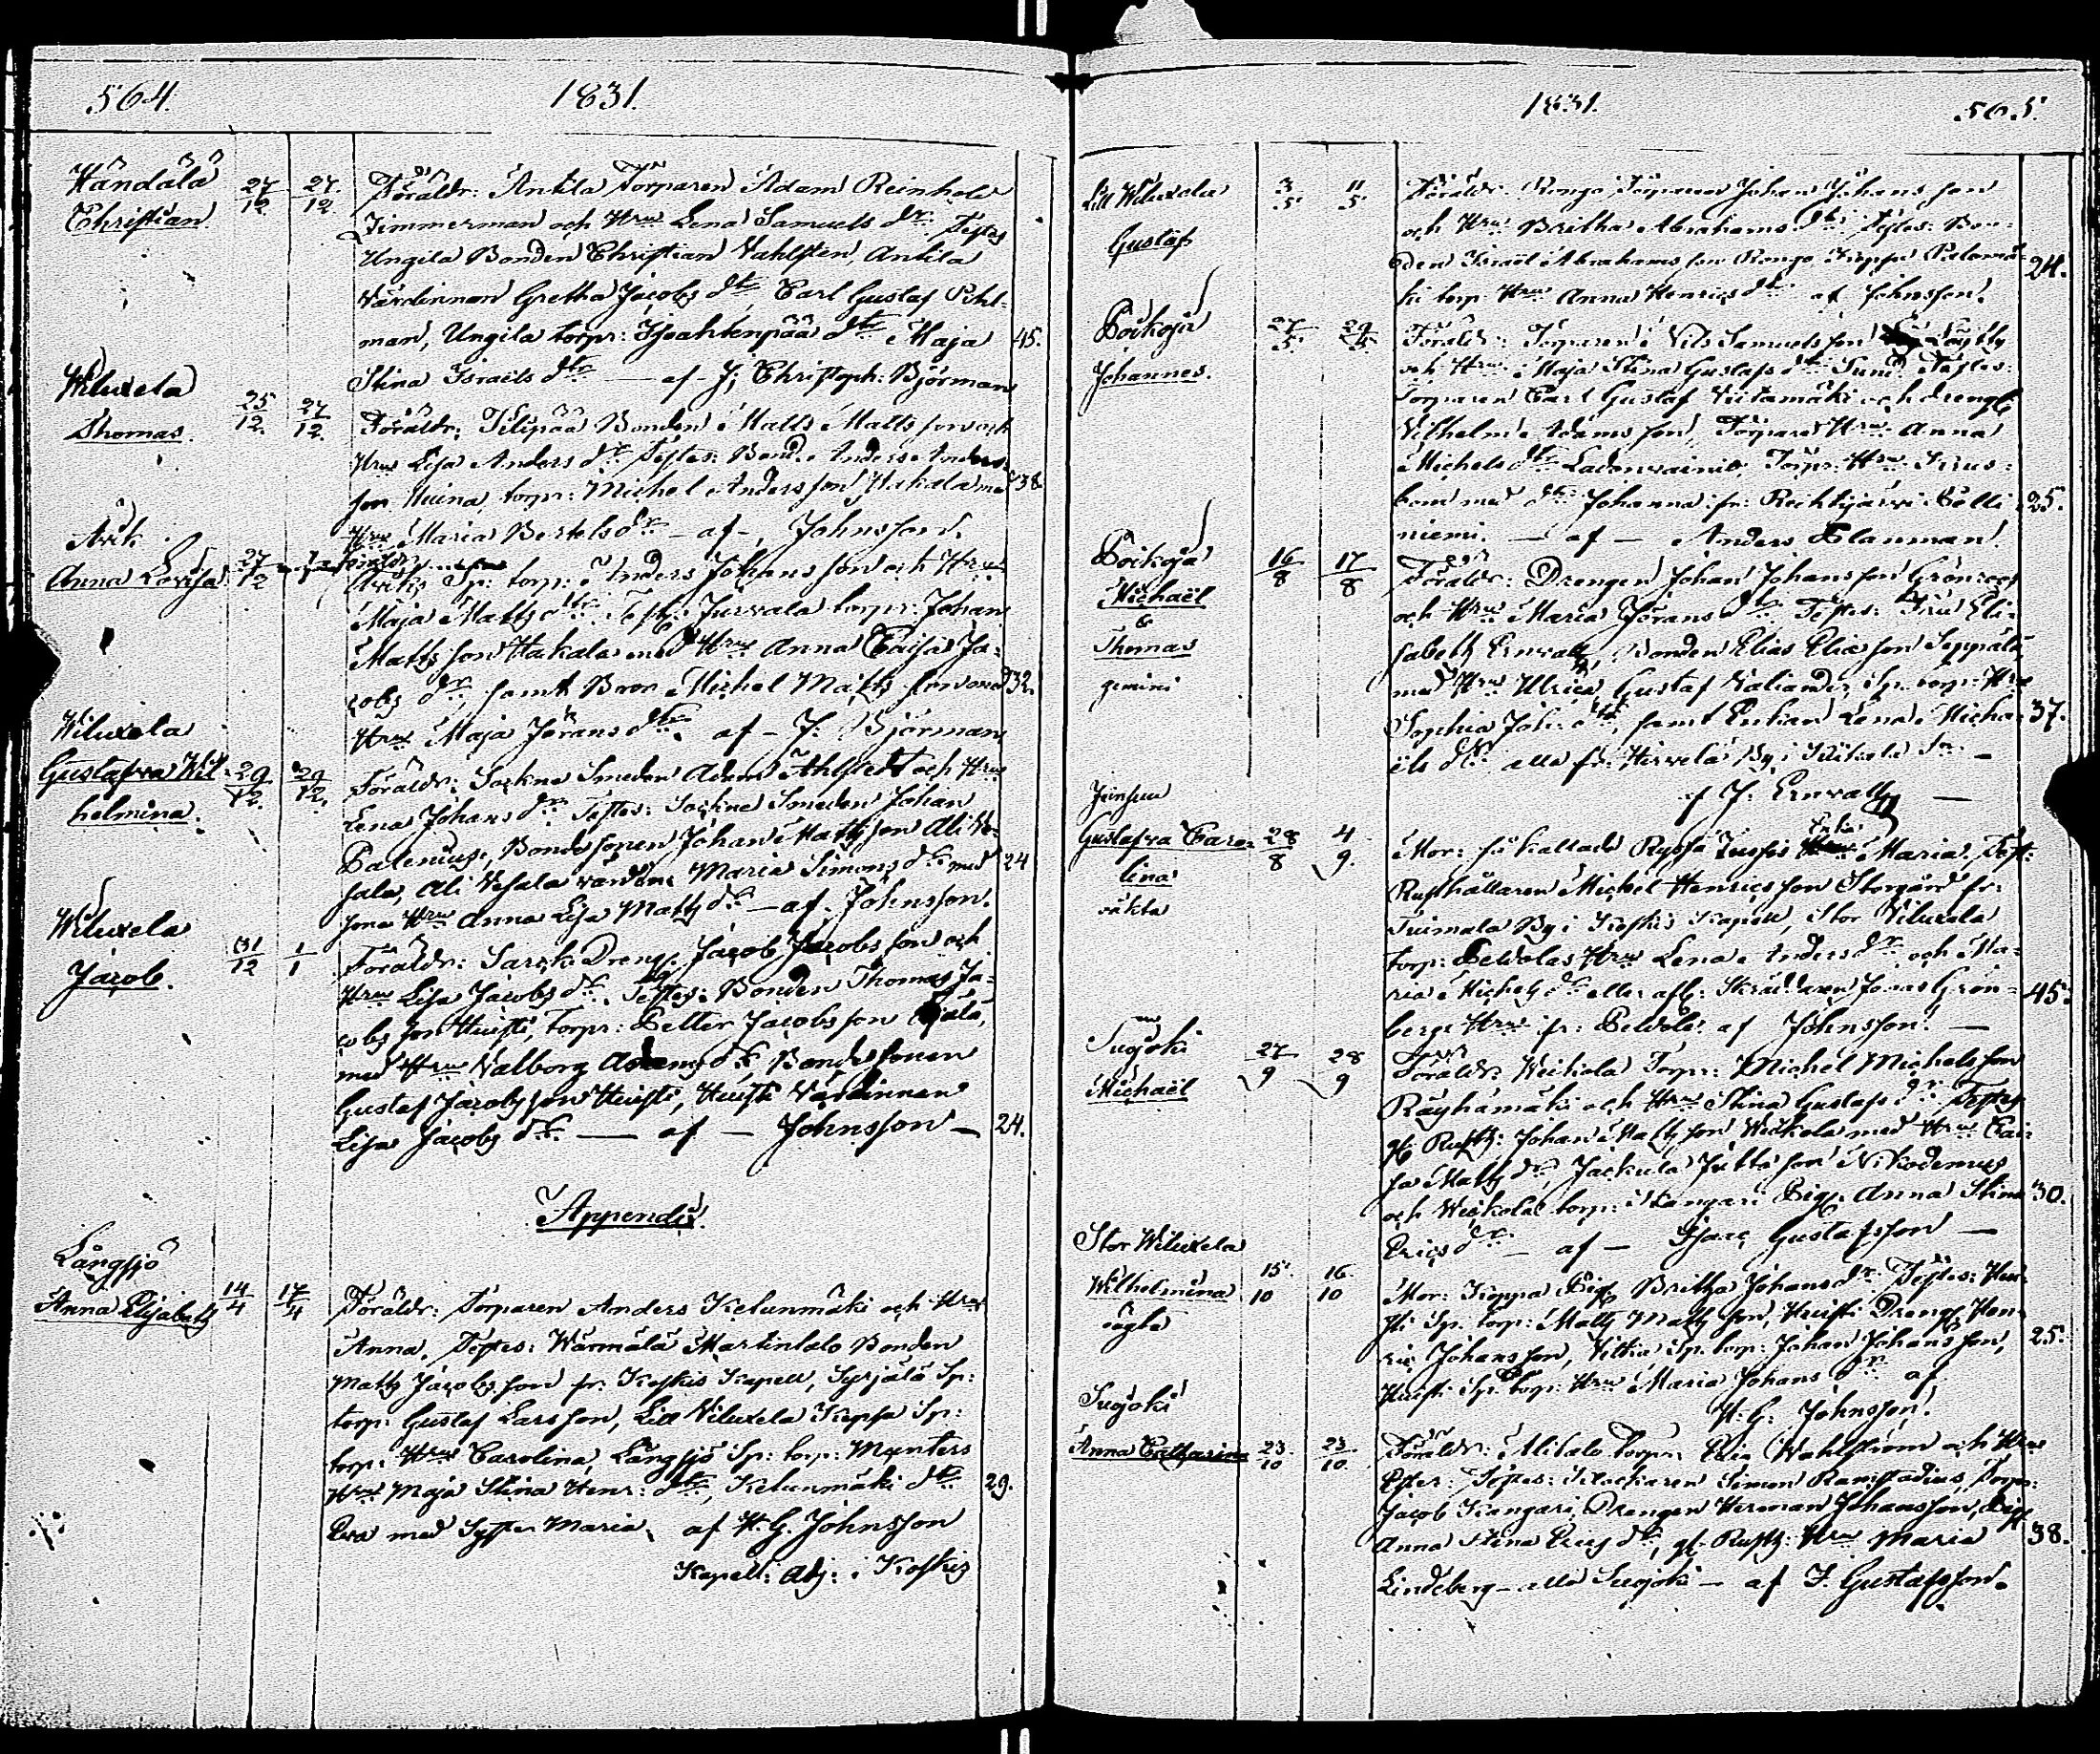 564. 1831.
Händälä
Christian
27/12 27/12
Föräldr: Antila Torparen Adam Reinhold
Zimmerman och Hru Lena Samuels dr. Testes
Ungila Bonden Christian Wahlsten, Antila
Värdinnan Gretha Jacobs dtr, Carl Gustaf Pihl-
man, Ungila torpr: Isoahtenpää dtr Maja
Stina Israels dtr — af J: Christoph: Björman
45.
Wiluxela
Thomas.
25/12. 27/12.
Föräldr: Filipää Bonden Matts Matts son och
Hru Lisa Anders dr Testes: Bond. Anders Anders-
son Huina, torpr: Michel Anders son Hakala med
Hru Maria Bertels dr — af — Johnsson.
38
Arik
Anna Lovisa
27/12
Sp: torp: Anders Johans son och Hru
Maja Matts dtr. Test: Jurvala torpr: Johan
Matts son Hakala med Hru Anna Caisa Ja-
cobs dr, samt Bror Michel Matts son med
Hru Maja Jörans dtr. af — J: Björman
32.
Wiluxela
Gustafva Wil-
helmina.
29/12. 29/12.
Föräldr: Sockne Smeden Adam Ahlstedt och Hru
Lena Johans dr. Testes: Sockne Smeden Johan
Palenius, Bonde sonen Johan Matts son Ali Ve-
sala, Ali Vesala värden Maria Simons dr med
sone Hru Anna Lisa Matts dr — af Johnsson.
24
Wiluxela
Jacob.
31/12 1/1
Föräldr: Sarsk Dreng. Jacob Jacobs son och
Hru Lisa Jacobs dr. Testes: Bonden Thomas Ja-
cobs son Huisti, Torpr: Petter Jacobs son
med Hru Valborg Adams dr Bonde sonen
Gustaf Jacobs son Huisti, Huisti Värdinnan
Lisa Jacobs dr. — af — Johnsson —
24.
Appendix.
Långsjö
Anna Elisabeth
14/4 17/4
Föräldr: Torparen Anders Kelunmäki och Hru
Anna. Testes: Wärmälä Martintalo Bonden
Matts Jacobs son fr: Koskis Kapell, Syrjälä Sp:
torp: Gustaf Larsson, Lill Wiluxela Keppa Sp:
torp: Hru Carolina, Långsjö Sp: torp: Munters
Hru Maja Stina Henr: dtr, Kelunmäki dtr
Eva med Syster Maria. af H. G. Johnsson
Kapell: Adj: i Koskis
29.
1831. 565.
Lill Wiluxela
Gustaf
3/5 11/5
Föräldr: Rongo Torparen Johan Johans son
och Hru Britha Abrahams dtr. Testes: Bon-
den Israel Abrahams son Rongo, Keppa
torp: Hru Anna Henrics dtr af Johnsson.
24.
Poikoja
Johannes.
27/5.
Föräldr: Torparen Nils Samuels son
och Hru Maja Stina Gustafs dtr Sund. Testes:
Torparen Carl Gustaf Viitamäki och dreng
Vilhelm Adams son, Torpare Hru Anna
Michels dtr Ladonvainio Torpr: Hru Krus-
bom med dtr Johanna fr: Rechtijärvi Pelli
niemi. — af — Anders Blauman.
25.
Poikoja
Michaël
&
Thomas
gemini
16/8 17/8
Föräldr: Drengen Johan Johans son Grönroos
och Hru Maria Jörans dtr. Testes: Fru Eli-
sabeth Ervall, Bonden Elias Elias son Seppälä
med Hru Ulrica, Gustaf Valiander Sp. torp: Hru
Sophia Joh: dtr, samt Enkan Lena Micha-
els dtr alla fr: Hirvelä By i Kiikala Sn. —
af J: Ervall —
37.
Gustafva Caro-
lina
oäkta
28/8 4/9.
Mor: så kallade Ryssä Jussis Enka Maria. Test:
Rusthållaren Michel Henrics son Storgård fr:
Tuimala By i Koskis Kapell, Stor Viluxela
torp: Pelvolas Hru Lena Anders dr och Ma-
ria Michels dr eller afl: Skräddaren Jonas Grön-
bergs Hru fr: Pelvola. af Johnsson. —
45.
Suojoki
Michaël
27/9 28/9
Föräldr: Weckola Torpr: Michel Michels son
Räyhämäki och Hru Stina Gustafs dr Testes
gl: Rusth: Johan Matts son Weckola med Hru Cai-
sa Matts dr, Jäckula Jutta son Nikodemus
och Weckola torp: Kangari Pig. Anna Stina
Erics dr — af — Isaac Gustafsson —
30.
Stor Wiluxela
Wilhelmina
oägta
15/10 16/10
Mor: Keppa Pig. Britha Johans dr. Testes: Hui-
sti Sp. torp: Matts Matts son, Huisti Dreng Hen-
ric Johans son, Sp. torp: Johan Johans son,
Huisti Sp. torp: Hru Maria Johans dr. af
H: G: Johnsson.
25.
Suojoki
Anna Catharina
23/10 23/10.
Föräldr: Alitalo Torpr: Eric Wahlström och Hru
Ester. Testes: Klockaren Simon Ramstadius, Torpr:
Jacob Kangari, Drengen Herman Johansson, Pig.
Anna Stina Erics dtr, gl: Rusth: Hru Maria
Lindeberg — alla Suojoki — af I. Gustafsson.
38.